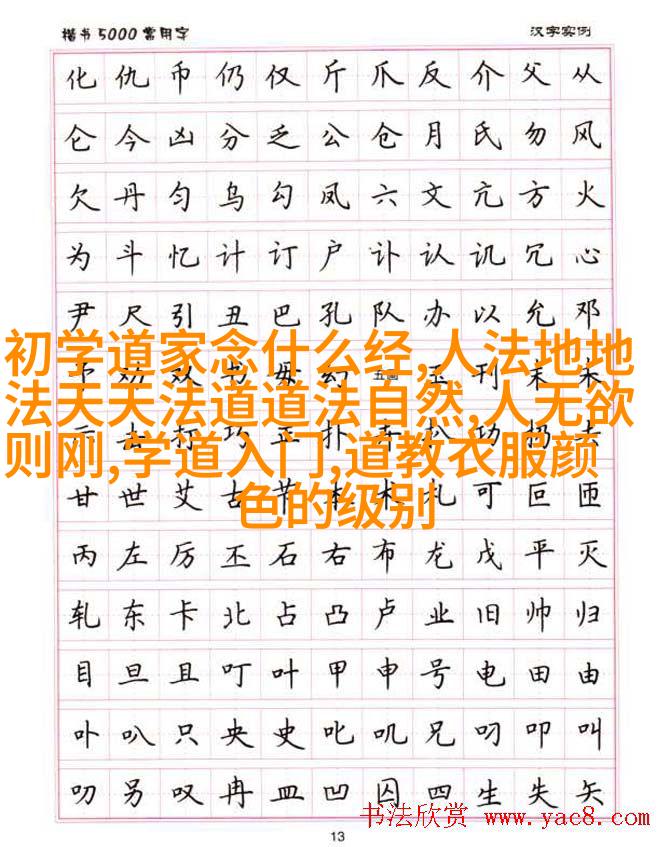 楷书5000常用字 汉字实例
化仇币仍仅斤爪反介父从
仑今凶分乏公仓月氏勿风
欠丹匀乌勾凤六文亢方火
为斗忆计订户讣认讥冗心
尹尺引丑巴孔队办以允邓
初学道家念什么经,人法地地
法天天法道道法自然,人无欲
则刚,学道入门,道教衣服颜
色的级别
甘世艾古节 术札可叵匝
丙左厉丕石右布龙戊平灭
轧东卡北占凸卢业旧帅归
目旦且叮叶甲申号电田由
卟叭只央史叱叽兄叼叩叫
叨另叹冉皿凹囚四生失矢
书法欣赏 www.yac8.com
13